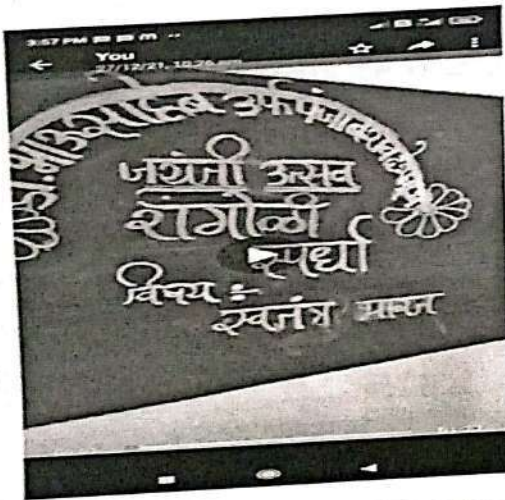 3:57 PM
You
27/12/21, 10:26 am
डॉ. भाऊसाहेब उर्फ पंजाबराव देशमुख
जयंती उत्सव
रांगोळी
स्पर्धा
विषय :-
स्वतंत्र भारत